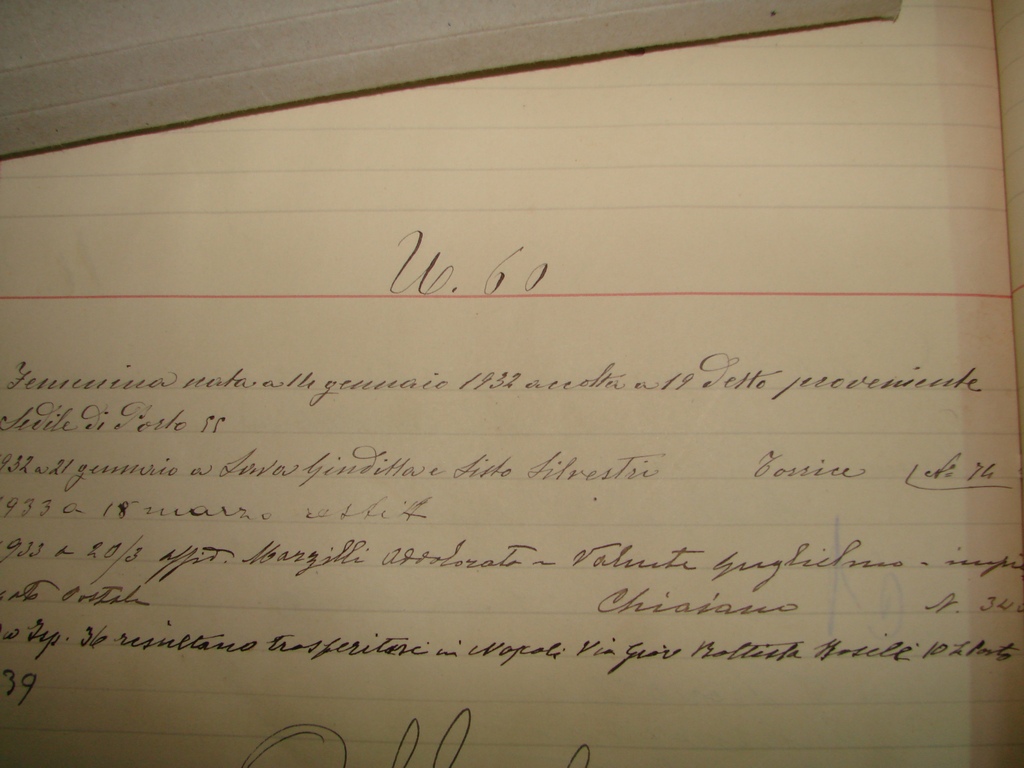 N. 60
Femminina nata a 14 gennaio 1932 accolta a 19 detto proveniente
Sedile di Porto 55
1932 a 21 gennaio a Sava Giuditta e Sisto Silvestri Tossice N. 74
1933 a 18 marzo restit
1933 a 20/3 affid. Marzilli Addolorata - Valente Guglielmo - impie
gato Postale Chiaiano N. 34
Isp. 36 risultano trasferitosi in Napoli Via Giov Battista 10 Porto
39